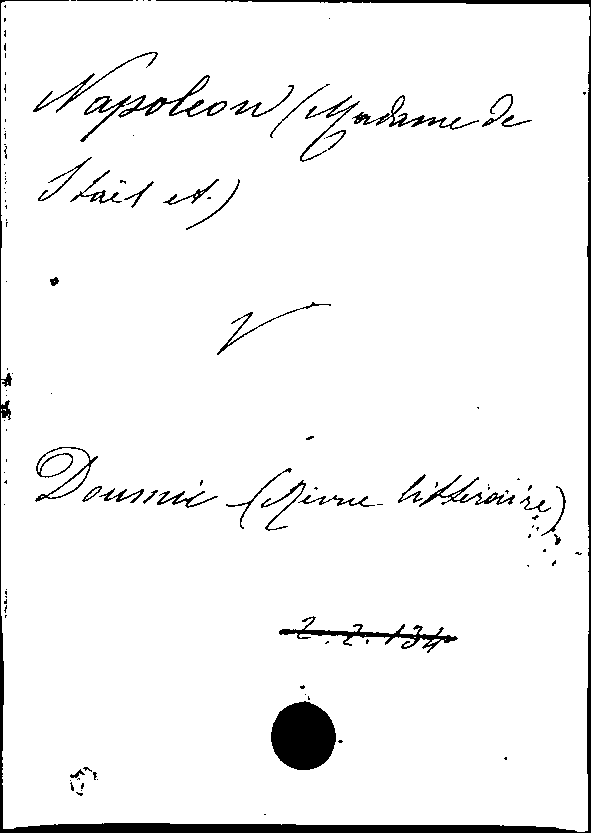 Napoleon (Madame de
Staël et)
V
Doumic (Revue littéraire)
2.2.134